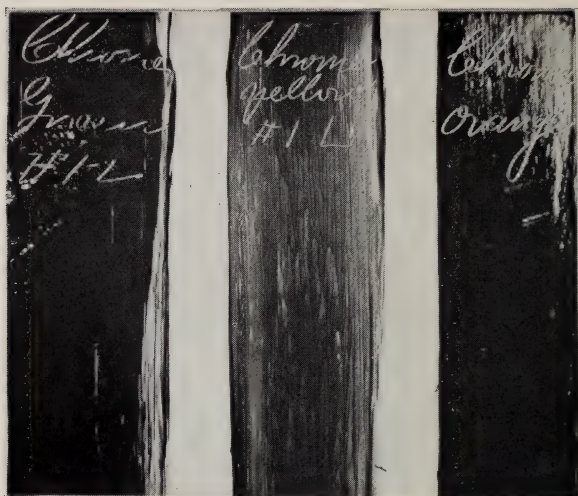 Chrome
Green
#1-L
Chrome
yellow
#1 L
Chrome
orange